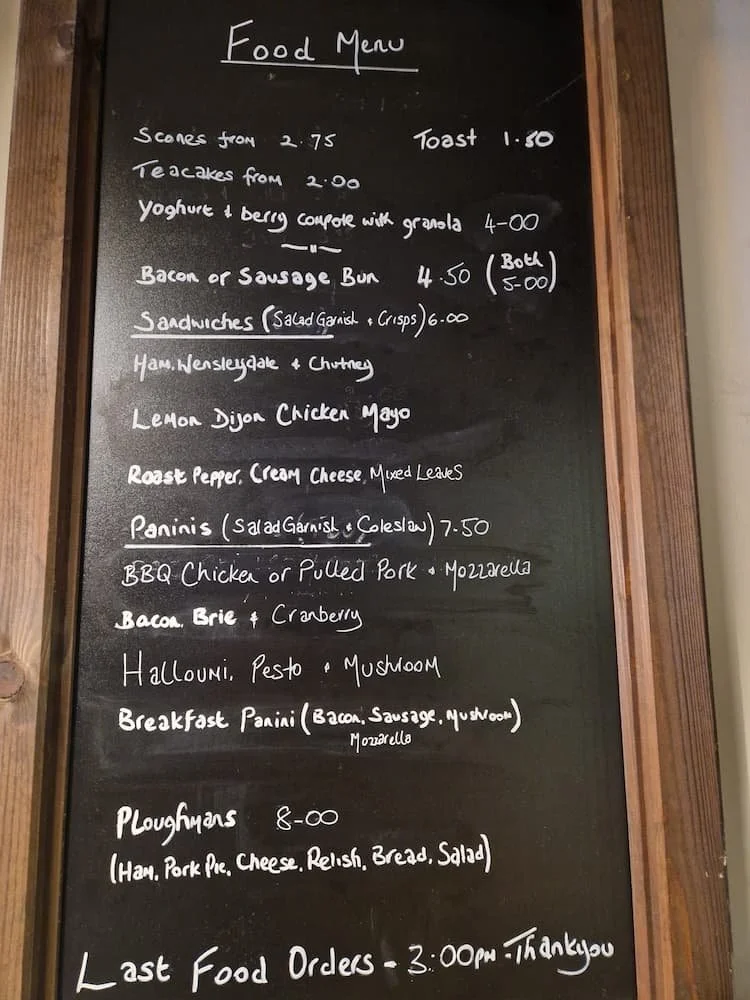 Food Menu
Scones from 2.75 Toast 1.50
Teacakes from 2.00
Yoghurt & berry compote with granola 4-00
Bacon or Sausage Bun 4.50 (Both 5-00)
Sandwiches (Salad Garnish & Crisps) 6.00
Ham, Wensleydale & Chutney
Lemon Dijon Chicken Mayo
Roast Pepper, Cream Cheese, Mixed Leaves
Paninis (Salad Garnish & Coleslaw) 7.50
BBQ Chicken or Pulled Pork & Mozzarella
Bacon, Brie & Cranberry
Halloumi, Pesto & Mushroom
Breakfast Panini (Bacon, Sausage, Mushroom)
Mozzarella
Ploughmans 8-00
(Ham, Pork Pie, Cheese, Relish, Bread, Salad)
Last Food Orders - 3:00pm - Thankyou